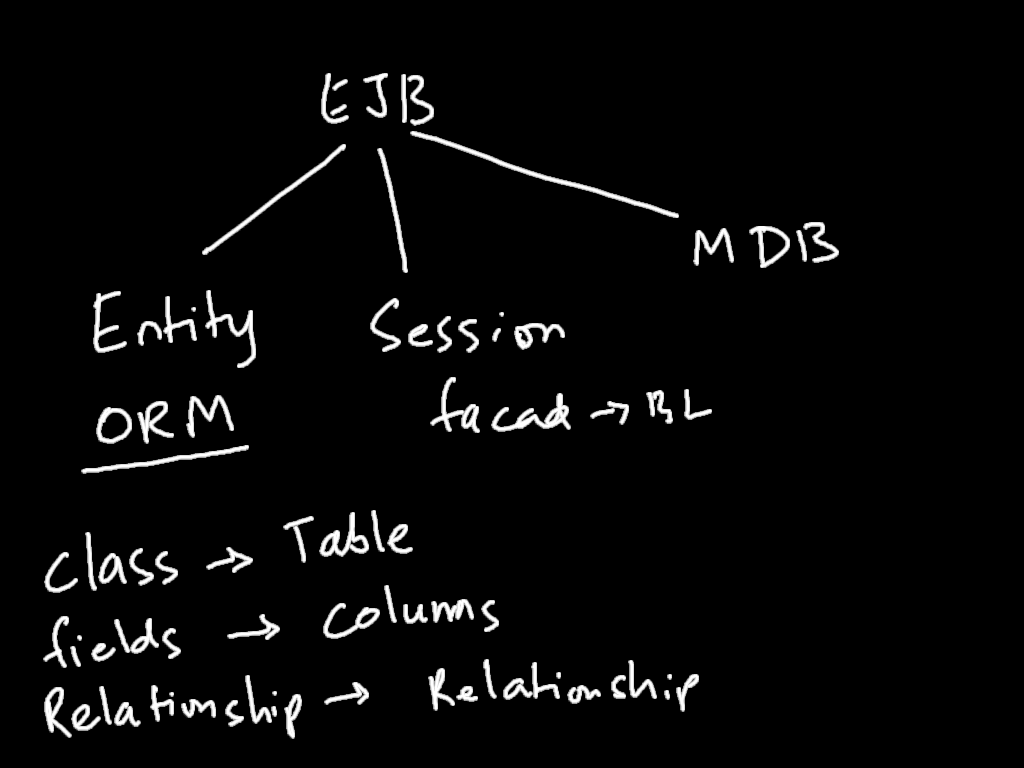 EJB
MDB
Entity
Session
ORM
facad → BL
class → Table
fields → columns
Relationship → Relationship